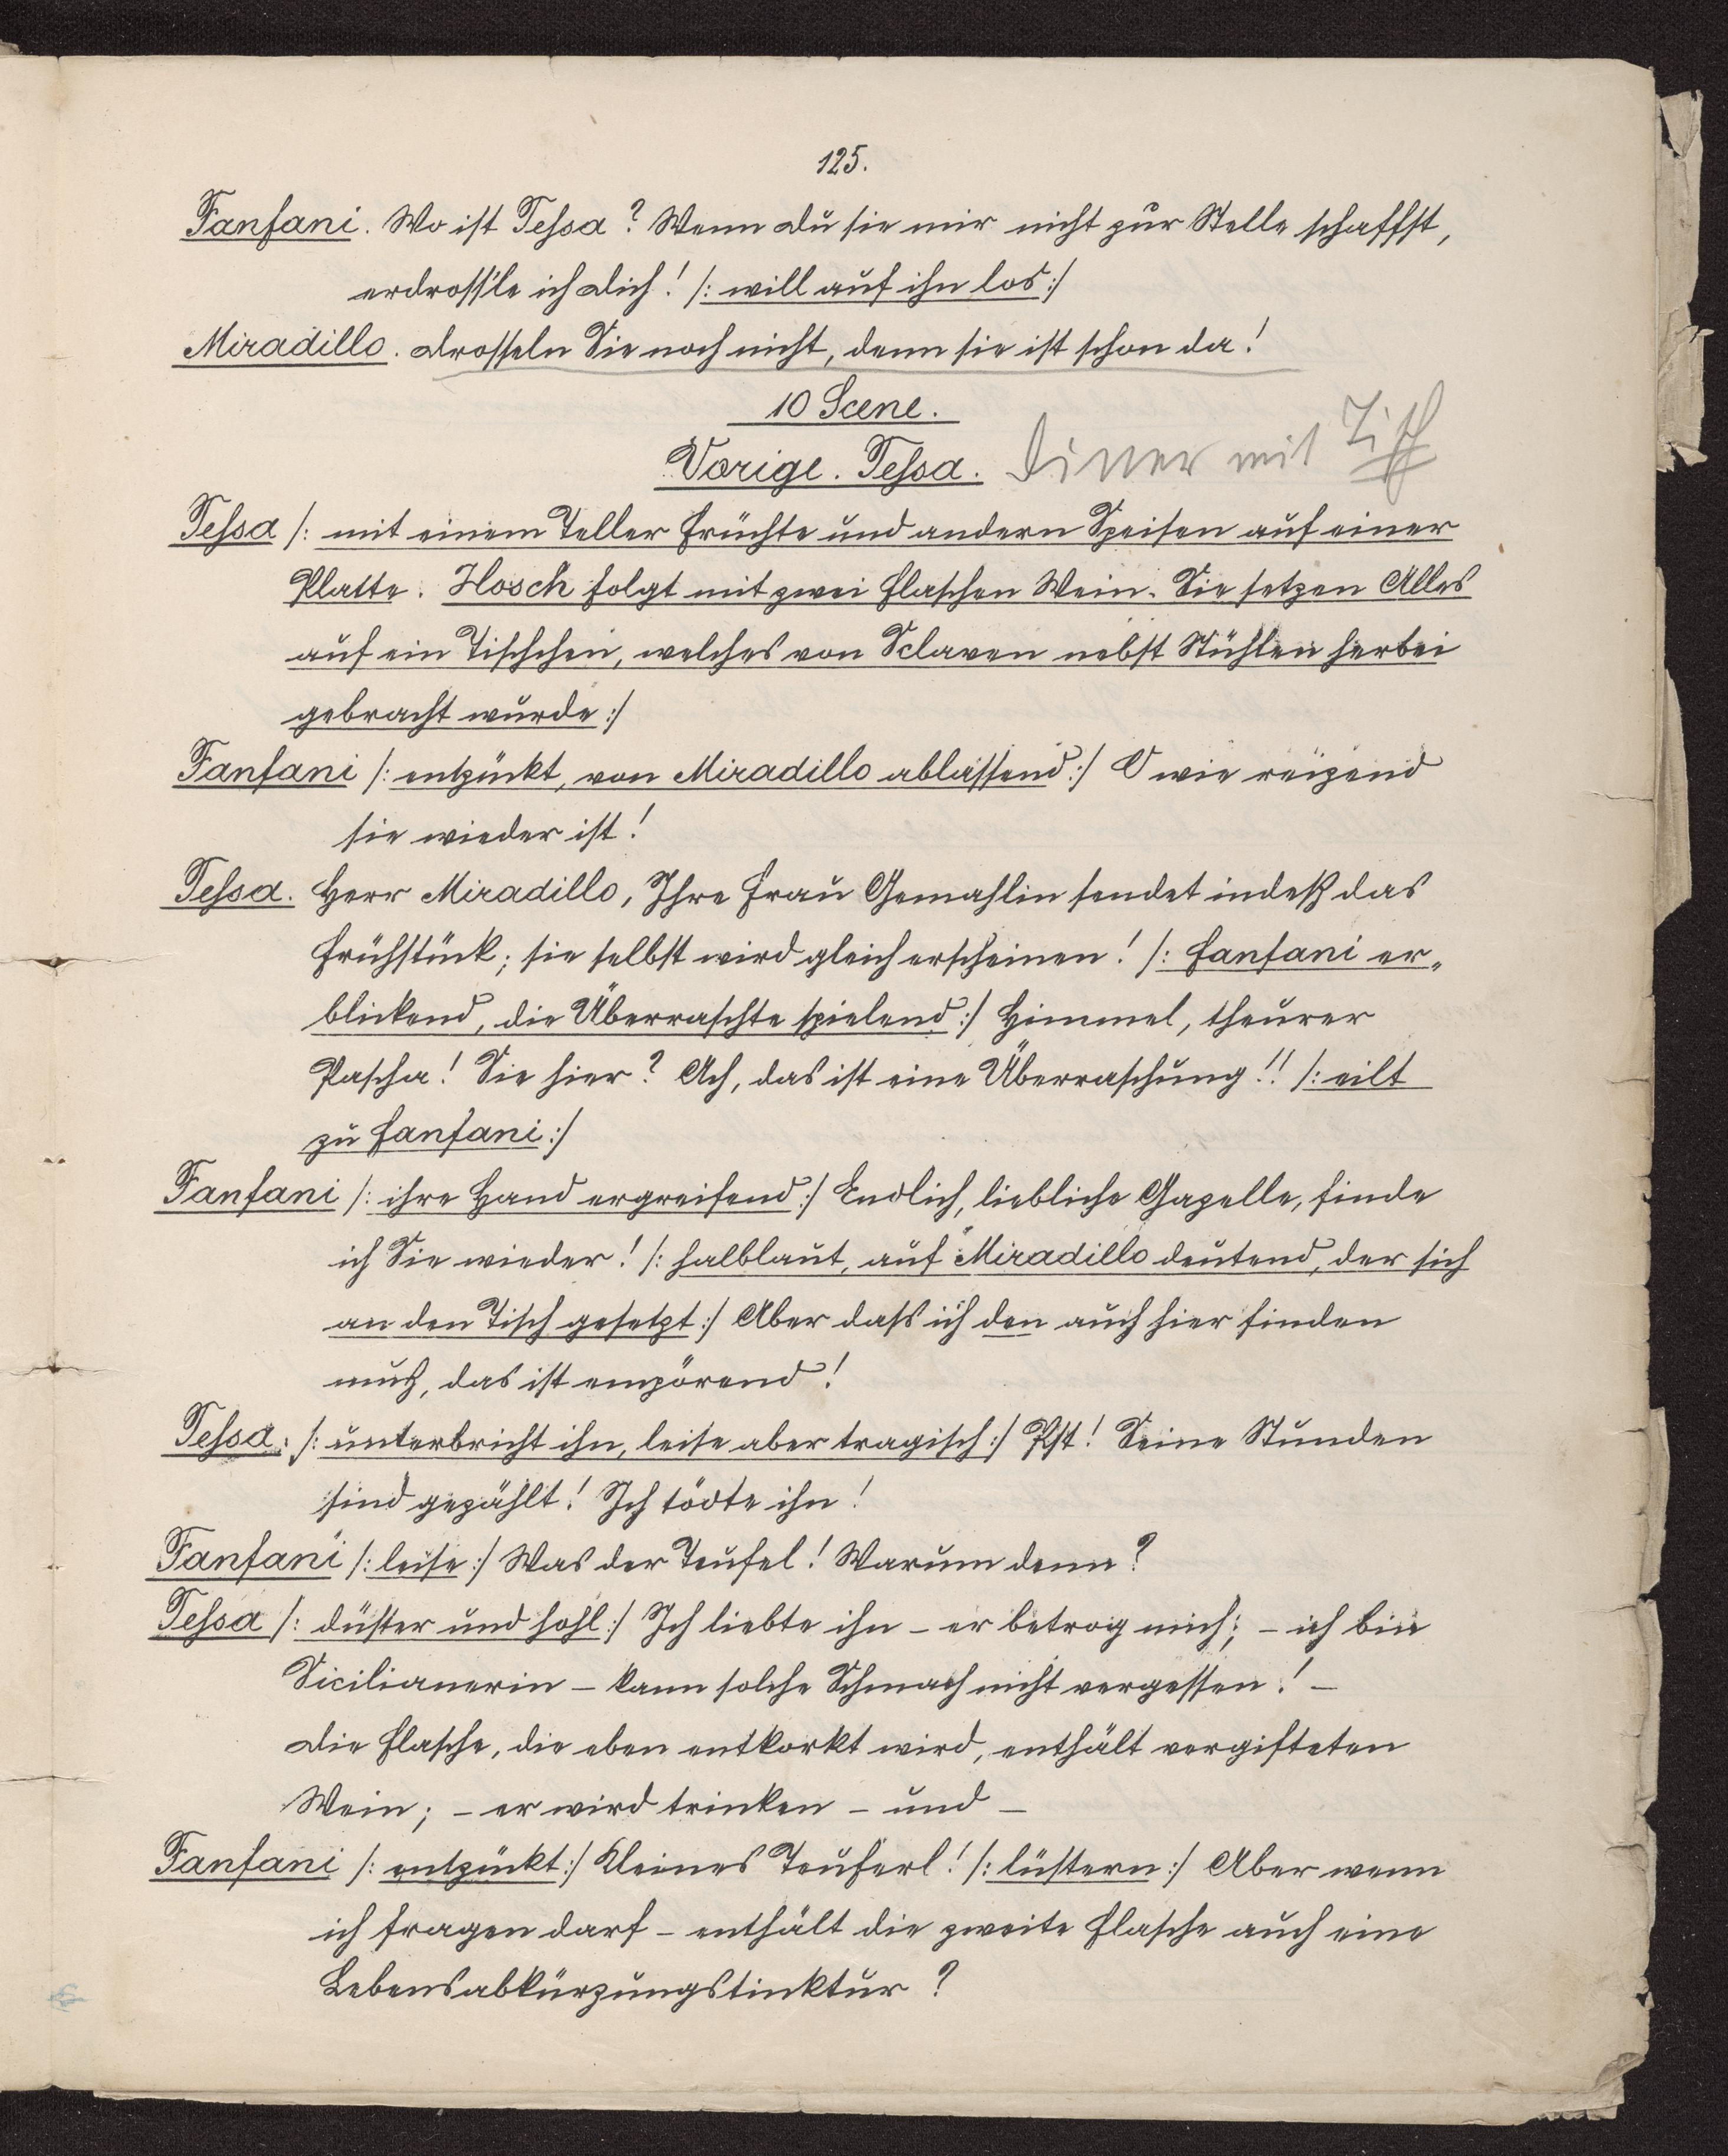 125.
Fanfani. Wo ist Teſsa? Wenn du sie mir nicht zur Stelle schaffst,
erdross'le ich dich! /: will auf ihn los :/
Miradillo. Drosseln Sie noch nicht, denn sie ist schon da!
10 Scene.
Vorige. Teſsa. Diener mit Tisch
Teſsa /: mit einem Teller Früchte und andern Speisen auf einer
Platte. Hosch folgt mit zwei Flaschen Wein. Sie setzen Alles
auf ein Tischchen, welches von Sclaven nebst Stühlen herbei
gebracht wurde :/
Fanfani /: entzückt, von Miradillo ablassend :/ O wie reizend
sie wieder ist!
Teſsa. Herr Miradillo, Ihre Frau Gemahlin sendet indeß das
Frühstück; sie selbst wird gleich erscheinen! /: Fanfani er„
blickend, die Überraschte spielend :/ Himmel, theurer
Pascha! Sie hier? Ach, das ist eine Überraschung!! /: eilt
zu Fanfani :/
Fanfani /: ihre Hand ergreifend :/ Endlich, liebliche Gazelle, finde
ich Sie wieder! /: halblaut, auf Miradillo deutend, der sich
an den Tisch gesetzt :/ Aber dass ich den auch hier finden
muß, das ist empörend!
Teſsa. /: unterbricht ihn, leise aber tragisch :/ Pst! Seine Stunden
sind gezählt! Ich tödte ihn!
Fanfani /: leise :/ Was der Teufel! Warum denn?
Teſsa /: düster und hohl :/ Ich liebte ihn – er betrog mich; – ich bin
Sicilianerin – kann solche Schmach nicht vergessen! –
Die Flasche, die eben entkorkt wird, enthält vergifteten
Wein; – er wird trinken – und –
Fanfani /: entzückt :/ Kleines Teuferl! /: lüstern :/ Aber wenn
ich fragen darf – enthält die zweite Flasche auch eine
Lebensabkürzungstinktur?